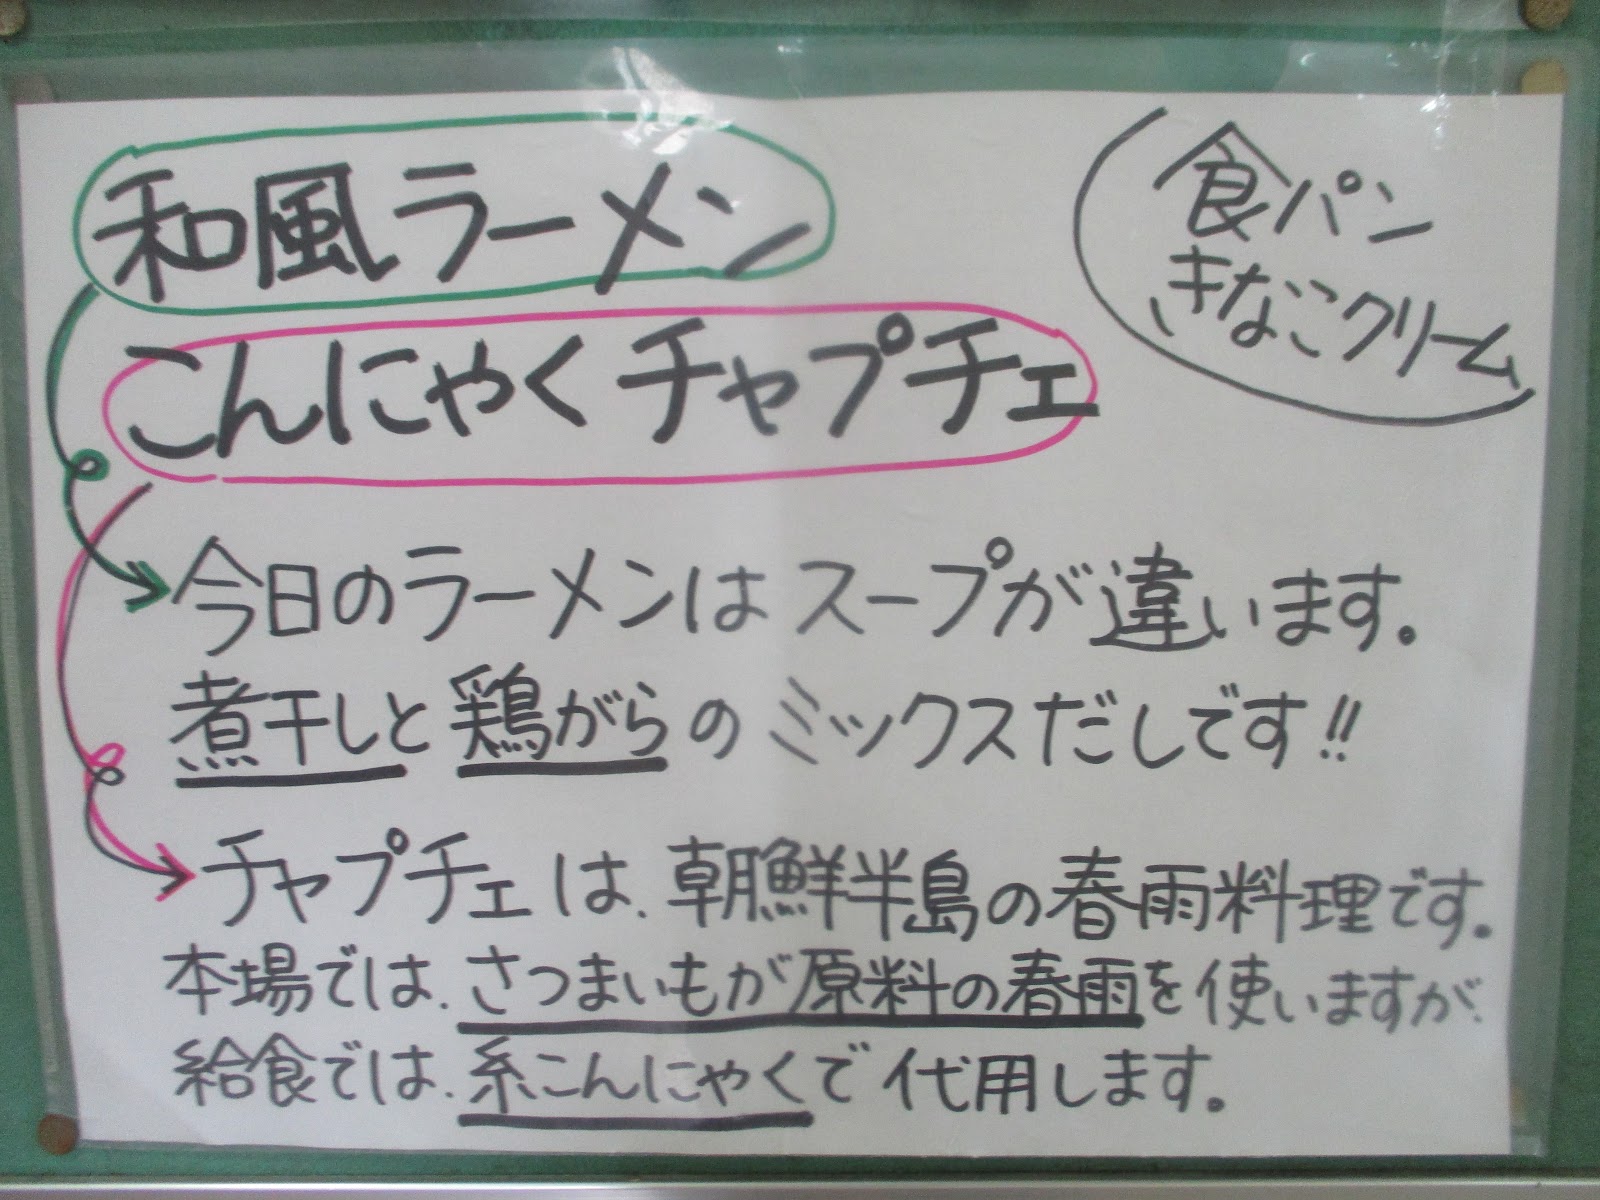 和風ラーメン
こんにゃくチャプチェ
食パン
きなこクリーム
今日のラーメンは スープが違います。
煮干しと鶏がらのミックスだしです!!
チャプチェは、朝鮮半島の春雨料理です。
本場では、さつまいもが原料の春雨を使いますが、
給食では、糸こんにゃくで代用します。